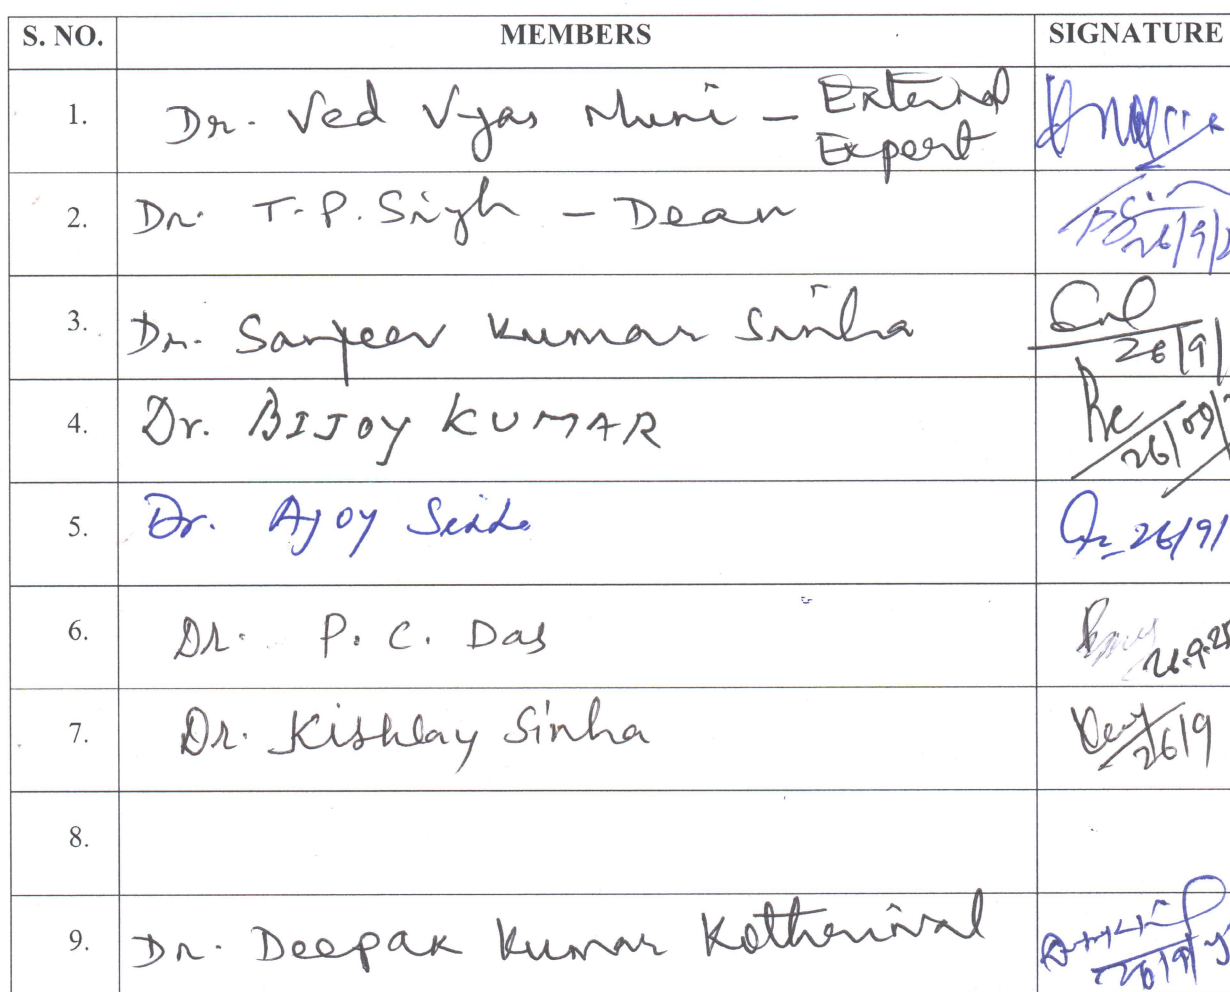 S. NO. MEMBERS SIGNATURE
1. Dr. Ved Vyas Muni - External
Expert
2. Dr. T.P. Singh - Dean 26/9/2
3. Dr. Sanjeev Kumar Sinha 26/9/
4. Dr. BIJOY KUMAR 26/09/
5. Dr. Ajoy 26/9/
6. Dr. P. C. Das 26.9.25
7. Dr. Kishlay Sinha 26/9
8.
9. Dr. Deepak Kumar 26/9/